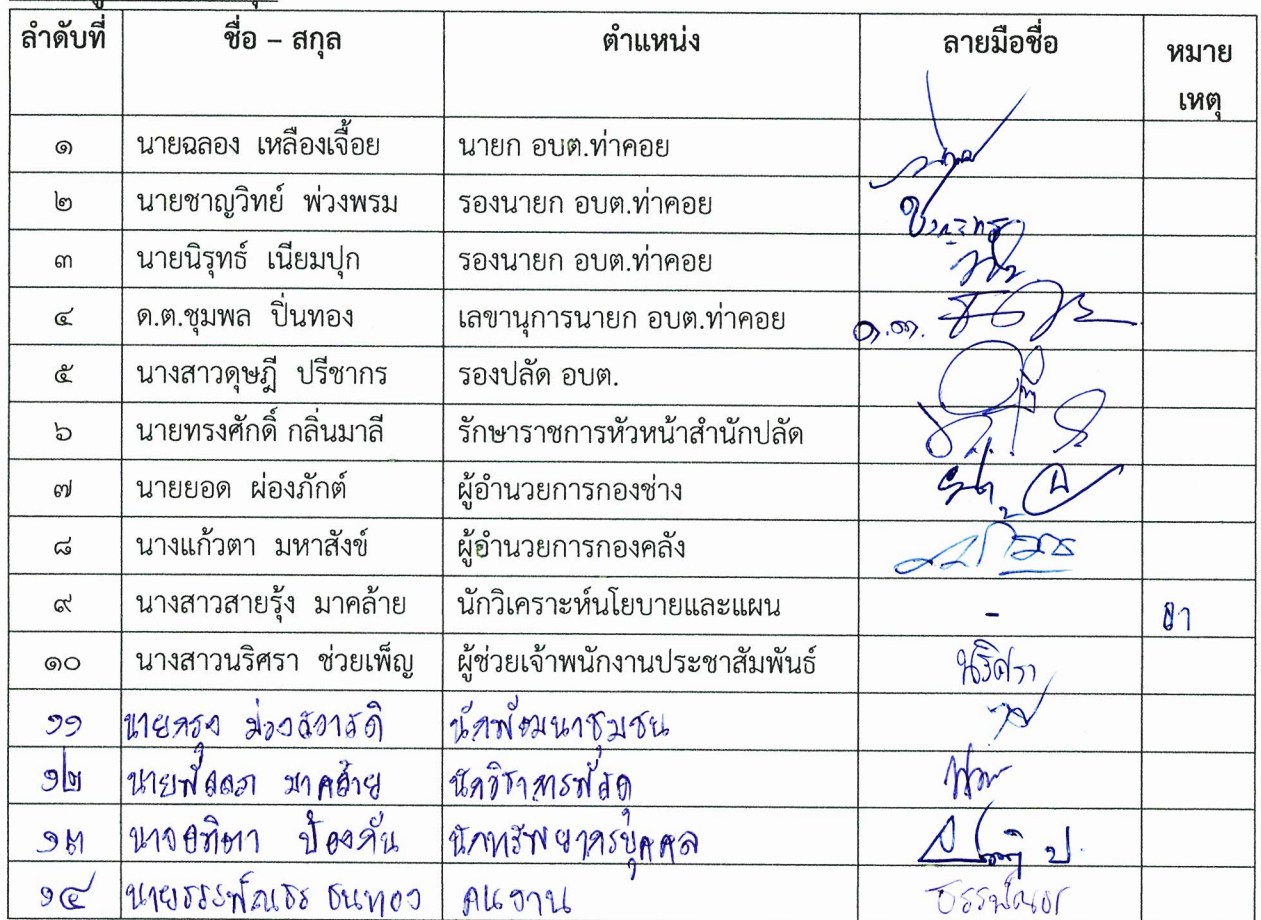 ลำดับที่ ชื่อ – สกุล ตำแหน่ง ลายมือชื่อ หมาย
เหตุ
๑ นายฉลอง เหลืองเจื้อย นายก อบต.ท่าคอย
๒ นายชาญวิทย์ พ่วงพรม รองนายก อบต.ท่าคอย
๓ นายนิรุทธ์ เนียมปุก รองนายก อบต.ท่าคอย
๔ ด.ต.ชุมพล ปิ่นทอง เลขานุการนายก อบต.ท่าคอย ด.ต.
๕ นางสาวดุษฎี ปรีชากร รองปลัด อบต.
๖ นายทรงศักดิ์ กลิ่นมาลี รักษาราชการหัวหน้าสำนักปลัด
๗ นายยอด ผ่องภักต์ ผู้อำนวยการกองช่าง
๘ นางแก้วตา มหาสังข์ ผู้อำนวยการกองคลัง
๙ นางสาวสายรุ้ง มาคล้าย นักวิเคราะห์นโยบายและแผน - ลา
๑๐ นางสาวนริศรา ช่วยเพ็ญ ผู้ช่วยเจ้าพนักงานประชาสัมพันธ์ นริศรา
๑๑ นาย นักพัฒนาชุมชน
๑๒ นาย มาคล้าย นักวิชาการพัสดุ
๑๓ ป้องกัน นักทรัพยากรบุคคล
๑๔ นาย ธนทอง คนงาน